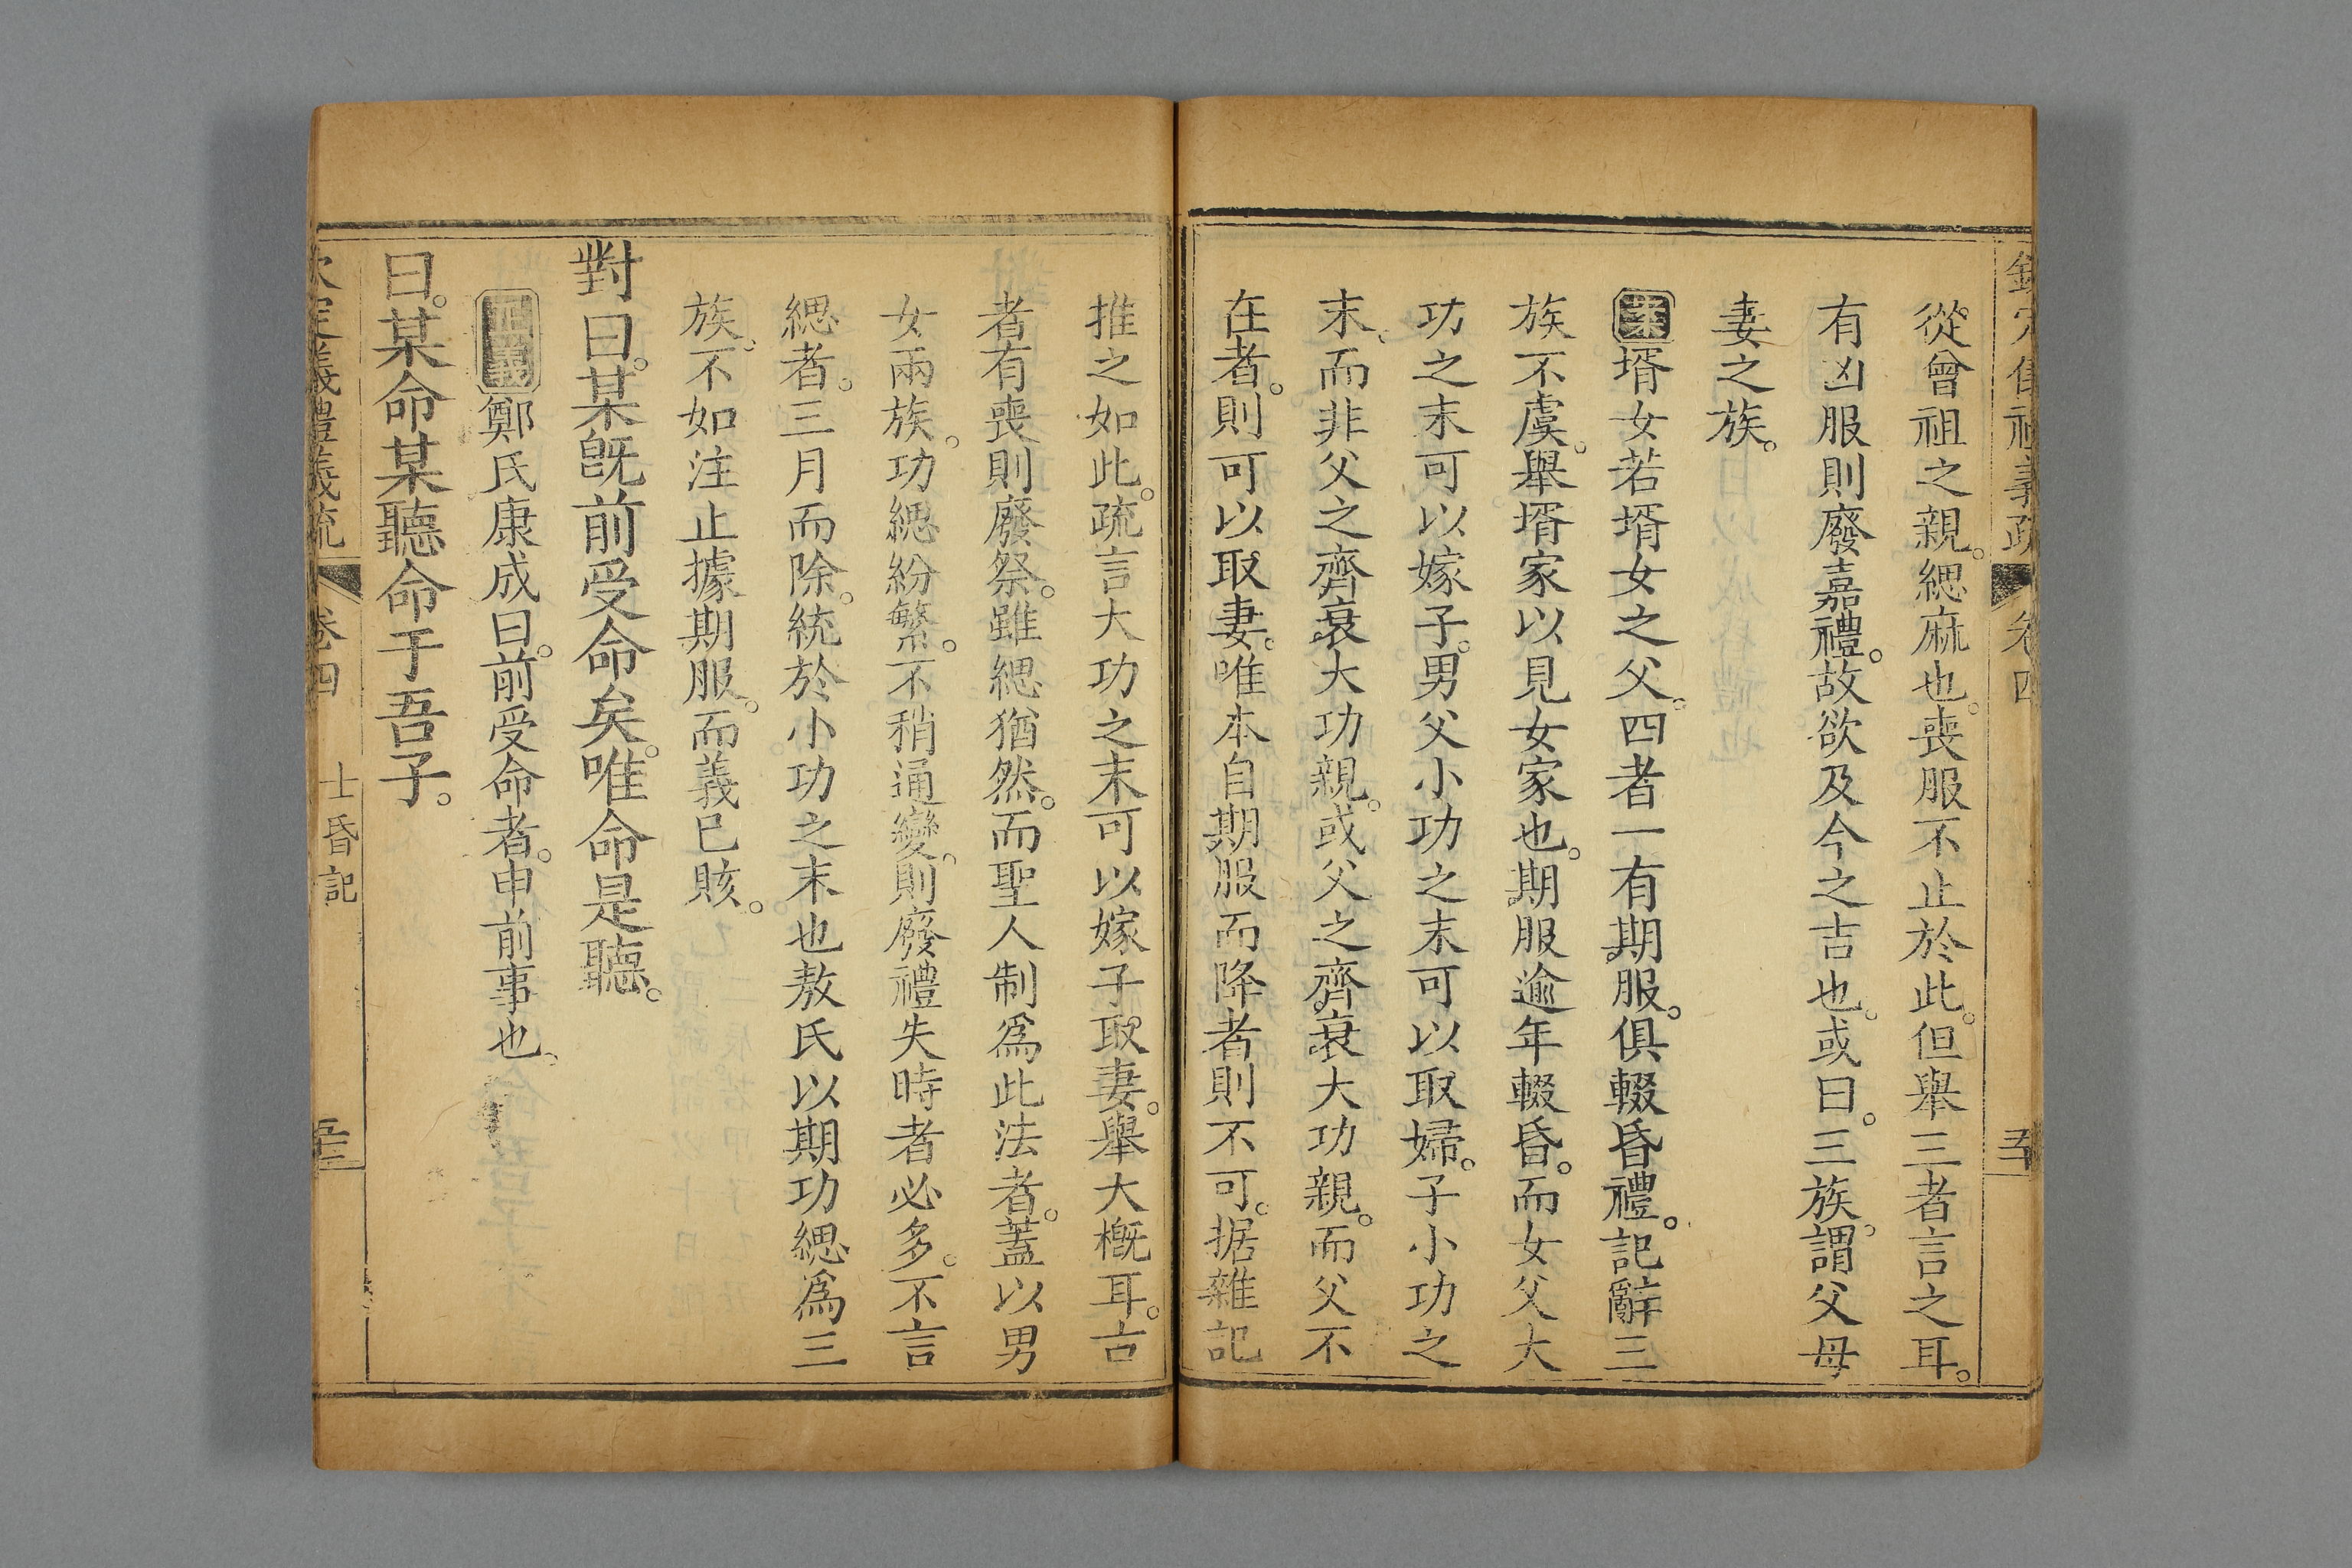 欽定儀禮義疏 卷四 五十
從曾祖之親。緦麻也。喪服不止於此。但舉三者言之耳。
有凶服則廢嘉禮。故欲及今之吉也。或曰。三族。謂父母
妻之族。
案壻女若壻女之父。四者一有期服。俱輟昏禮。記辭三
族不虞。舉壻家以見女家也。期服逾年輟昏。而女父大
功之末可以嫁子。男父小功之末可以取婦。子小功之
末、而非父之齊衰大功親。或父之齊衰大功親。而父不
在者。則可以取妻。唯本自期服而降者則不可。据雜記
推之如此。疏言大功之末可以嫁子取妻。舉大槪耳。古
者有喪則廢祭。雖緦猶然。而聖人制爲此法者。蓋以男
女兩族。功緦紛繁。不稍通變。則廢禮失時者必多。不言
緦者。三月而除。統於小功之末也敖氏以期功緦爲三
族。不如注止據期服。而義已賅。
對曰。某旣前受命矣。唯命是聽。
鄭氏康成曰。前受命者。申前事也。
曰。某命某聽命于吾子。
欽定儀禮義疏 卷四 士昏記